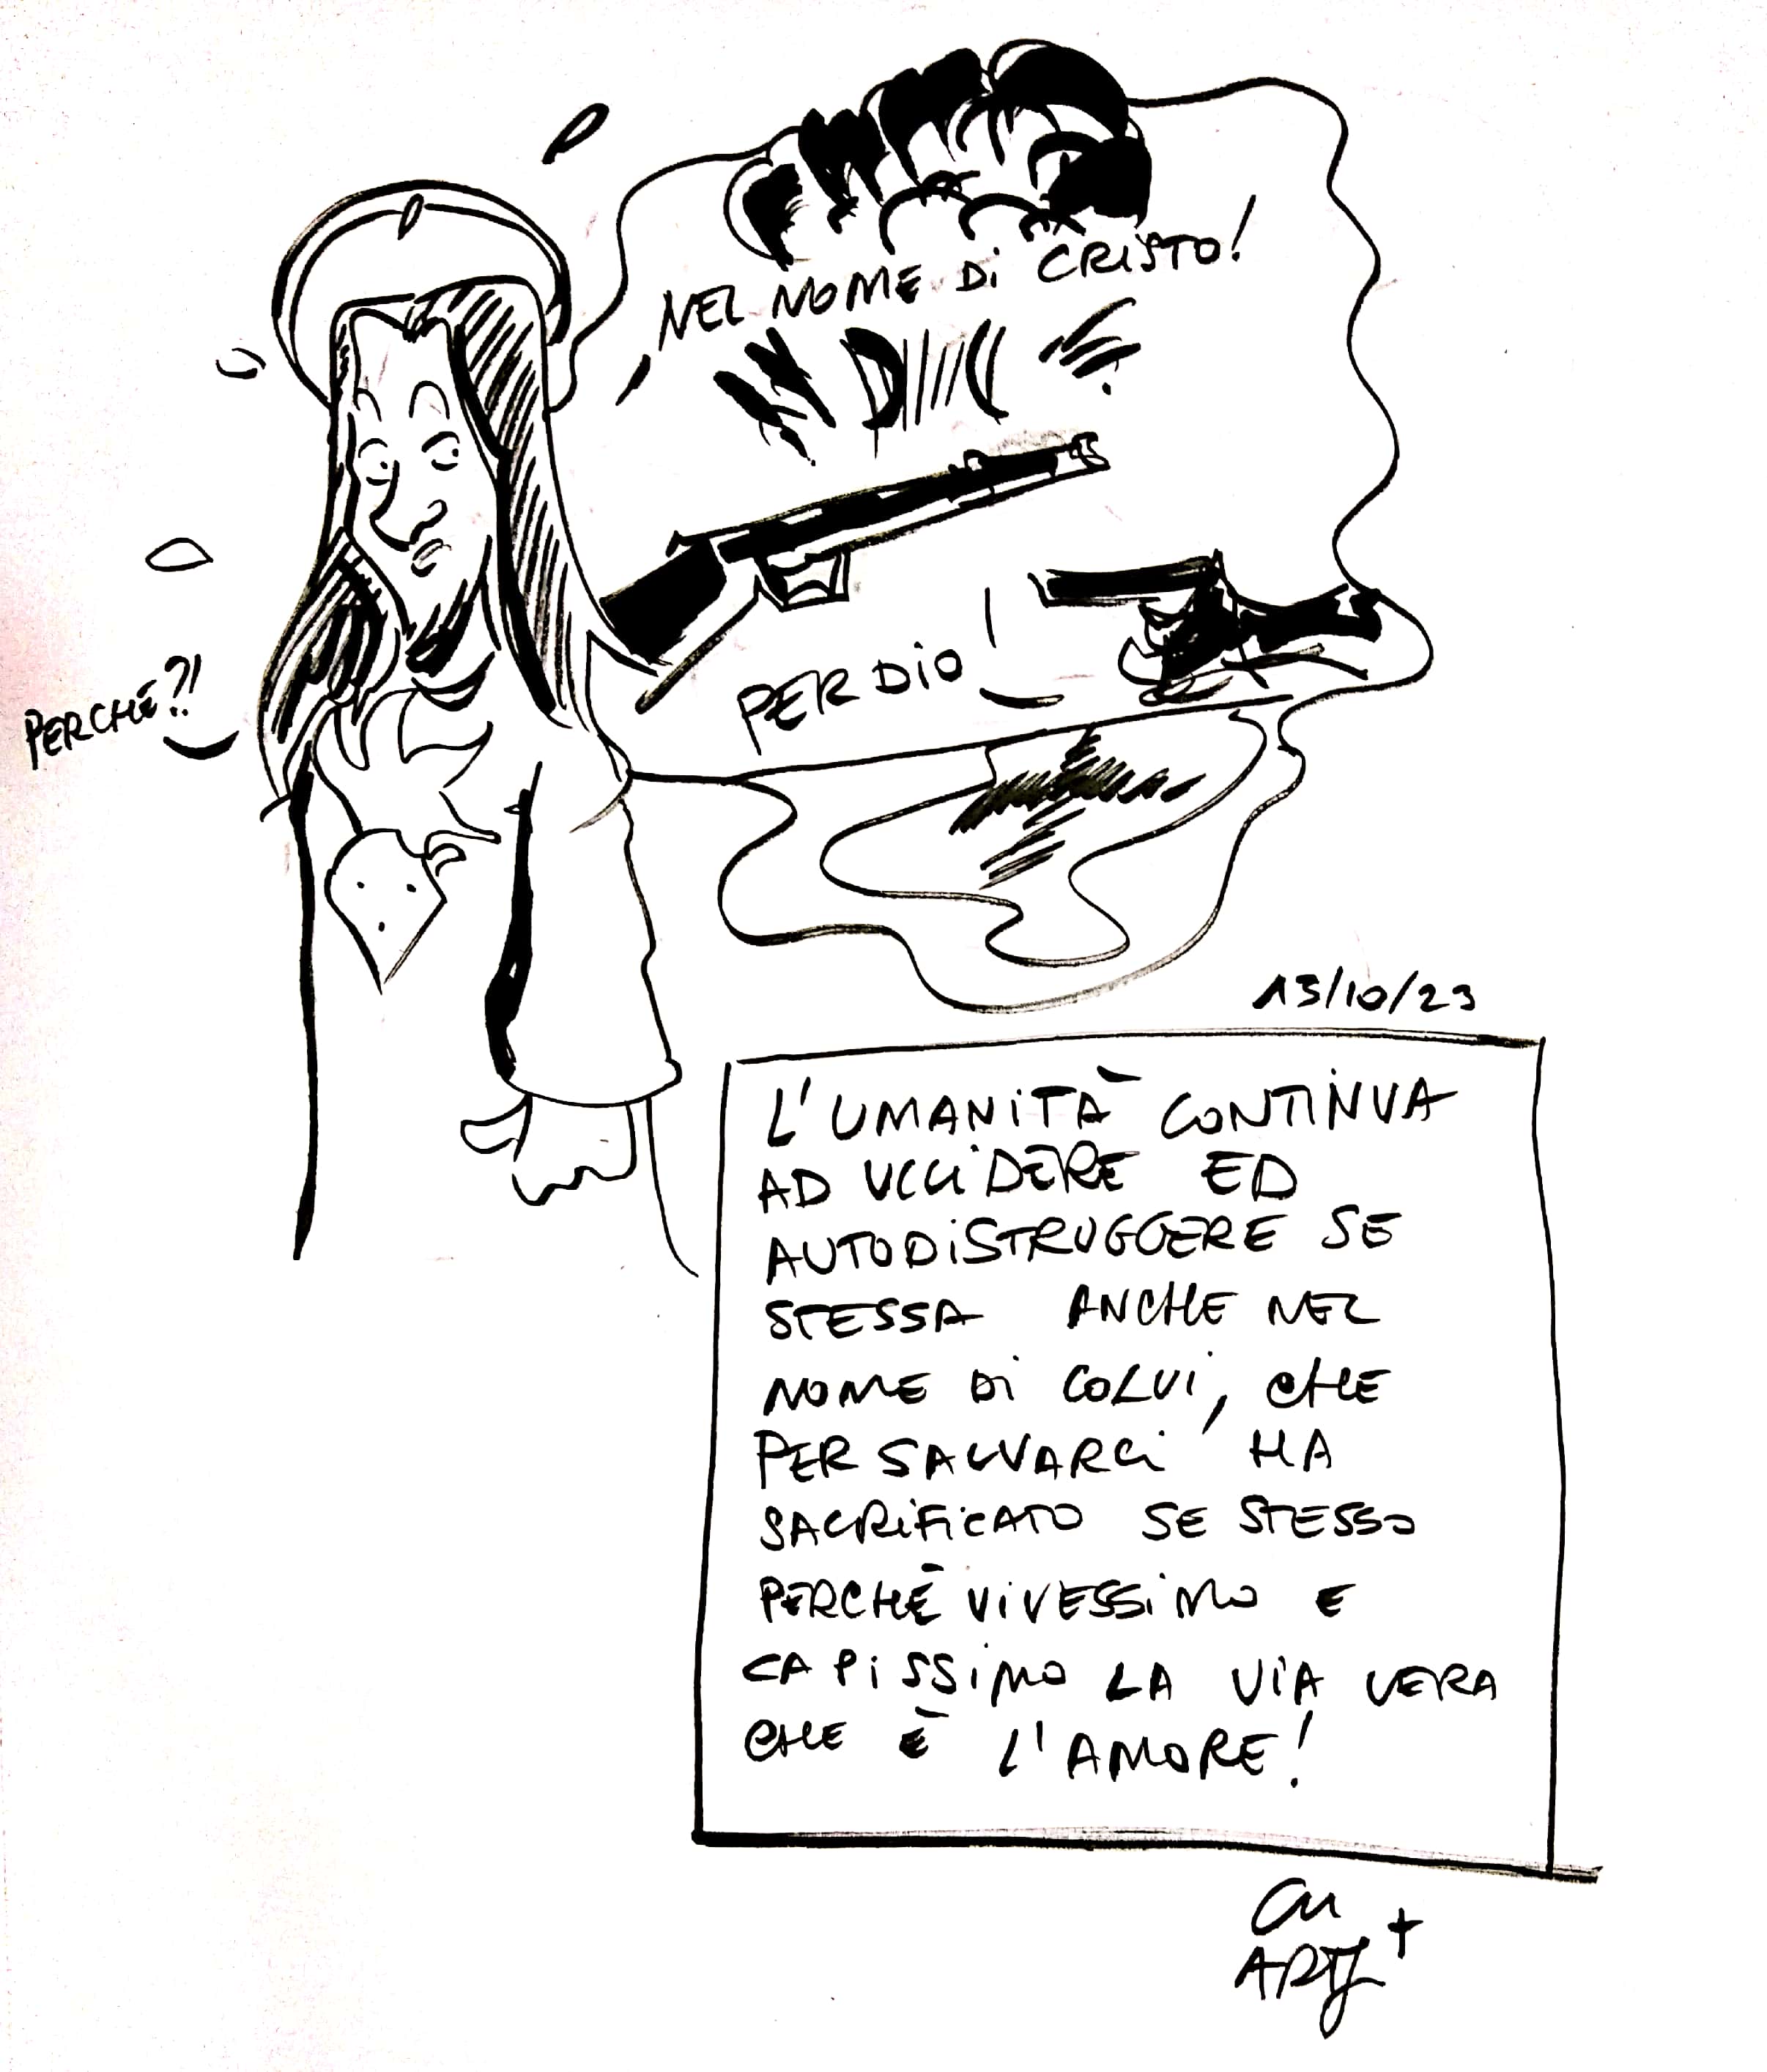 NEL NOME DI CRISTO!
PER DIO!
PERCHÉ?!
13/10/23
L'UMANITÀ CONTINUA
AD UCCIDERE ED
AUTODISTRUGGERE SE
STESSA ANCHE NEL
NOME DI COLUI, CHE
PER SALVARCI HA
SACRIFICATO SE STESSO
PERCHÉ VIVESSIMO E
CAPISSIMO LA VIA VERA
CHE È L'AMORE!